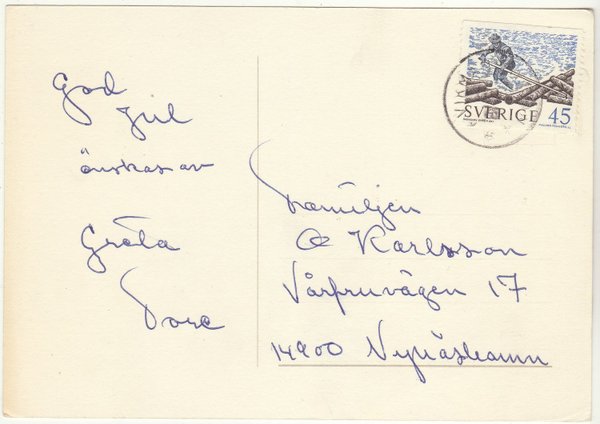 God
Jul
önskas av
Greta
Tore
SVERIGE 45
Familjen
A Karlsson
Vårfruvägen 17
14900 Nynäshamn